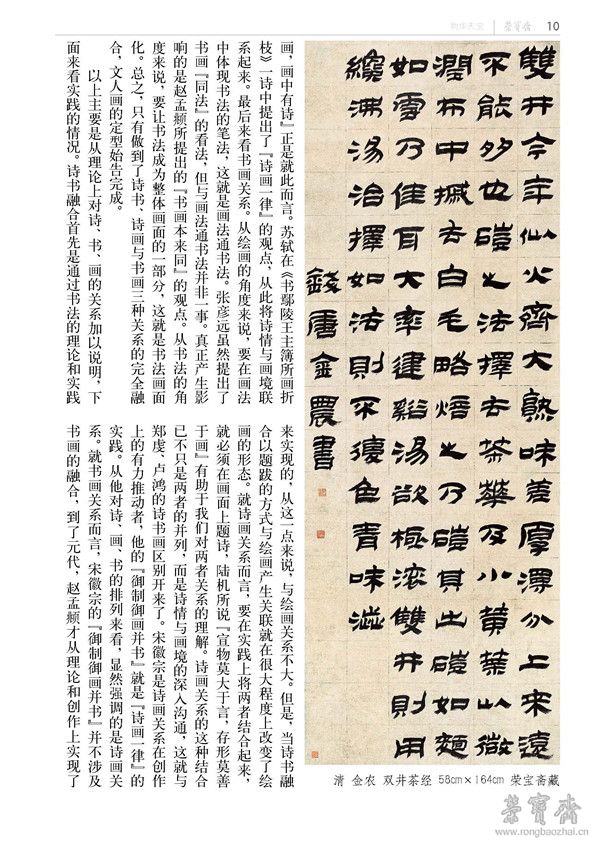 物华天宝 荣宝斋 10
雙井今年似火齊大熟味差厚淂分上來遠
不能多也磑之法擇去茶華及小黄葉以微
潤布中摵去白毛略焙之乃磑其出磑如麵
如雪乃佳耳大率建谿湯欲極滚雙井則用
纔沸湯治擇如法則不復色青味澁
錢唐金農書
清 金农 双井茶经 58cm×164cm 荣宝斋藏
画，画中有诗』正是就此而言。苏轼在《书鄢陵王主簿所画折
枝》一诗中提出了『诗画一律』的观点，从此将诗情与画境联
系起来。最后来看书画关系。从绘画的角度来说，要在画法
中体现书法的笔法，这就是画法通书法。张彦远虽然提出了
书画『同法』的看法，但与画法通书法并非一事。真正产生影
响的是赵孟頫所提出的『书画本来同』的观点。从书法的角
度来说，要让书法成为整体画面的一部分，这就是书法画面
化。总之，只有做到了诗书、诗画与书画三种关系的完全融
合，文人画的定型始告完成。
以上主要是从理论上对诗、书、画的关系加以说明，下
面来看实践的情况。诗书融合首先是通过书法的理论和实践
来实现的，从这一点来说，与绘画关系不大。但是，当诗书融
合以题跋的方式与绘画产生关联就在很大程度上改变了绘
画的形态。就诗画关系而言，要在实践上将两者结合起来，
就必须在画面上题诗，陆机所说『宣物莫大于言，存形莫善
于画』有助于我们对两者关系的理解。诗画关系的这种结合
已不只是两者的并列，而是诗情与画境的深入沟通，这就与
郑虔、卢鸿的诗书画区别开来了。宋徽宗是诗画关系在创作
上的有力推动者，他的『御制御画并书』就是『诗画一律』的
实践。从他对诗、画、书的排列来看，显然强调的是诗画关
系。就书画关系而言，宋徽宗的『御制御画并书』并不涉及
书画的融合，到了元代，赵孟頫才从理论和创作上实现了
荣宝斋
www.rongbaozhai.cn